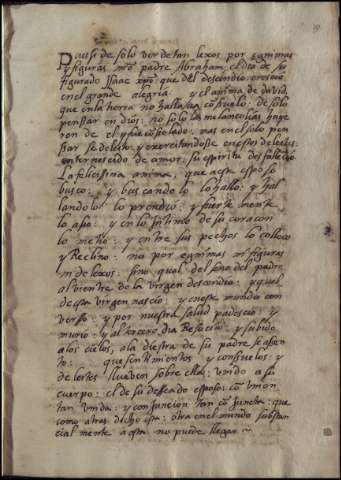 Pues si de solo ver de tan lexos por egnimas
y figuras nr̃o padre Abraham el dia de su
figurado Issac xpõ que del descendio: crescio
en el grande alegria: y el anima de david
que en la tierra no hallava cõsuelo: de solo
penssar en dios: no solo las melancolias huye
ron de el y fue cõsolado: mas en el solo pen
ssar se deleito: y exercitandosse en estos deleites:
enternescido de amor: su espiritu desfallecio
La felicissima anima, que a este esposo
busco: y buscando lo lo hallo: y hal
landolo lo prendio: y fuerte mente
lo asio: y en lo intimo de su coracon
lo metio: y entre sus pechos lo colloco
y Reclino: no por egnimas ni figuras
ni de lexos. sino qual del seno del padre
al vientre de la virgen descendio: y qual
de esta virgen nascio: y en este mundo con
verso: y por nuestra salud padescio: y
murio: y al tercero dia Resucito: y subido
a los cielos, a la diestra de su padre se asien
to: que sentimientos y consuelos: y
deleites llueven sobre ella: unido a su
cuerpo: el de su desseado esposo: cõ union
tan unida: y confuncion tan cõ juncta: que
como atras dicho esta: otra en el mundo substan
cial mente a esta no puede llegar